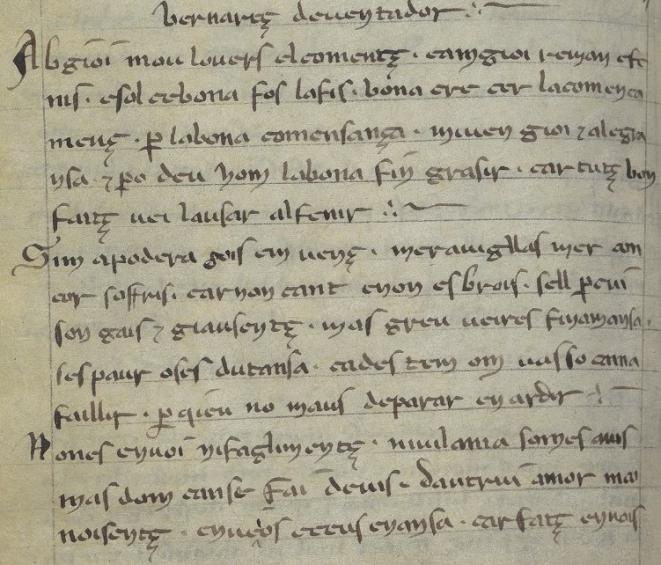 bernartȥ deuentador
Ab gioi mou louers el comentȥ · cam gioi reman efe
nis · e sol ce bona fos la fis · bona ere cer la comença
mentȥ · p la bona comensança · mi uen gioi ⁊ alegra
nsa · ⁊ p so deu hom la bona fin grasir · car totȥ bon
faitȥ uei lausar al fenir
Sim apodera gois em uenȥ · merauigllas mer com
cor sofris · car non cant e non esbrois · sell p cui
son gais ⁊ giausentȥ · mas greu ueires fin amansa ·
ses paur o ses dutansa · cades tem om uas so canna
faillir · p qieu no maus deparar en ardir
Non es enuoi ni fagllimentȥ · ni uilania so mes auis
mas dom canse fai deuis · dautrui amor ma
noisentȥ · enueios cceus enansa · car fatȥ enuois